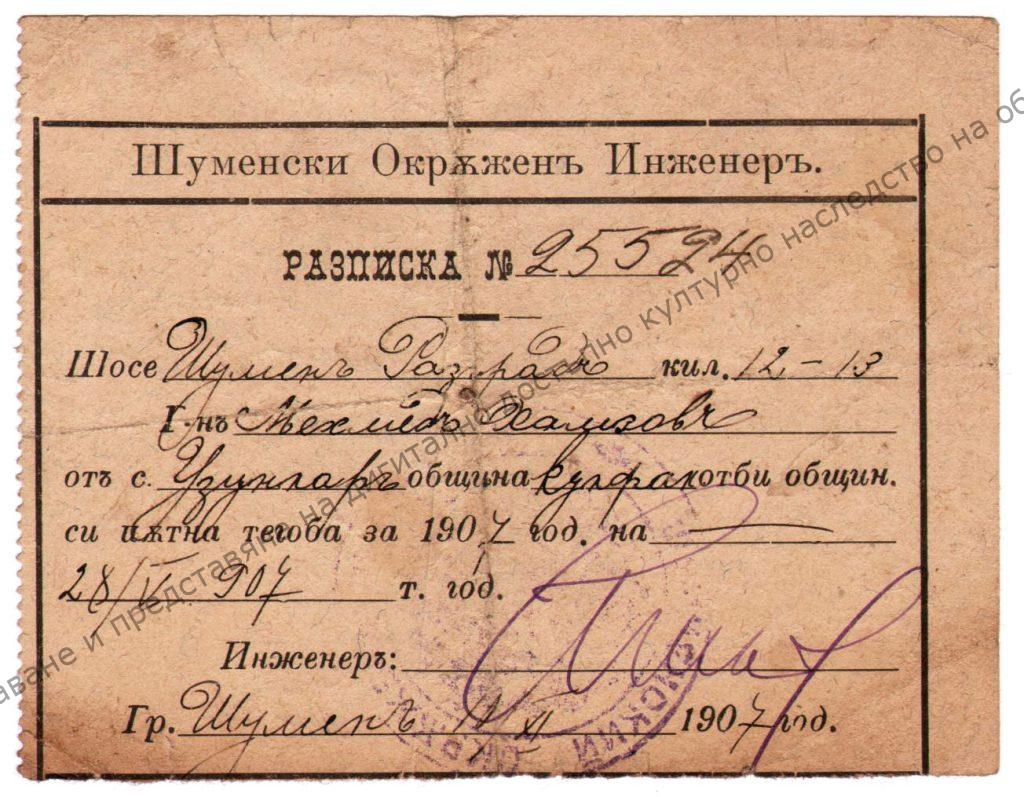 Шуменски Окрѫженъ Инженеръ.
РАЗПИСКА № 25524
Шосе Шуменъ Разградъ кил. 12 – 13
Г-нъ Мехмедъ
от с. община отби общин.
си пѫтна тегоба за 1907 год. на —
28/ 907 т. год.
Инженеръ:
Гр. Шуменъ 1907 год.
аване и представяне на дигитално достъпно културно наследство на об